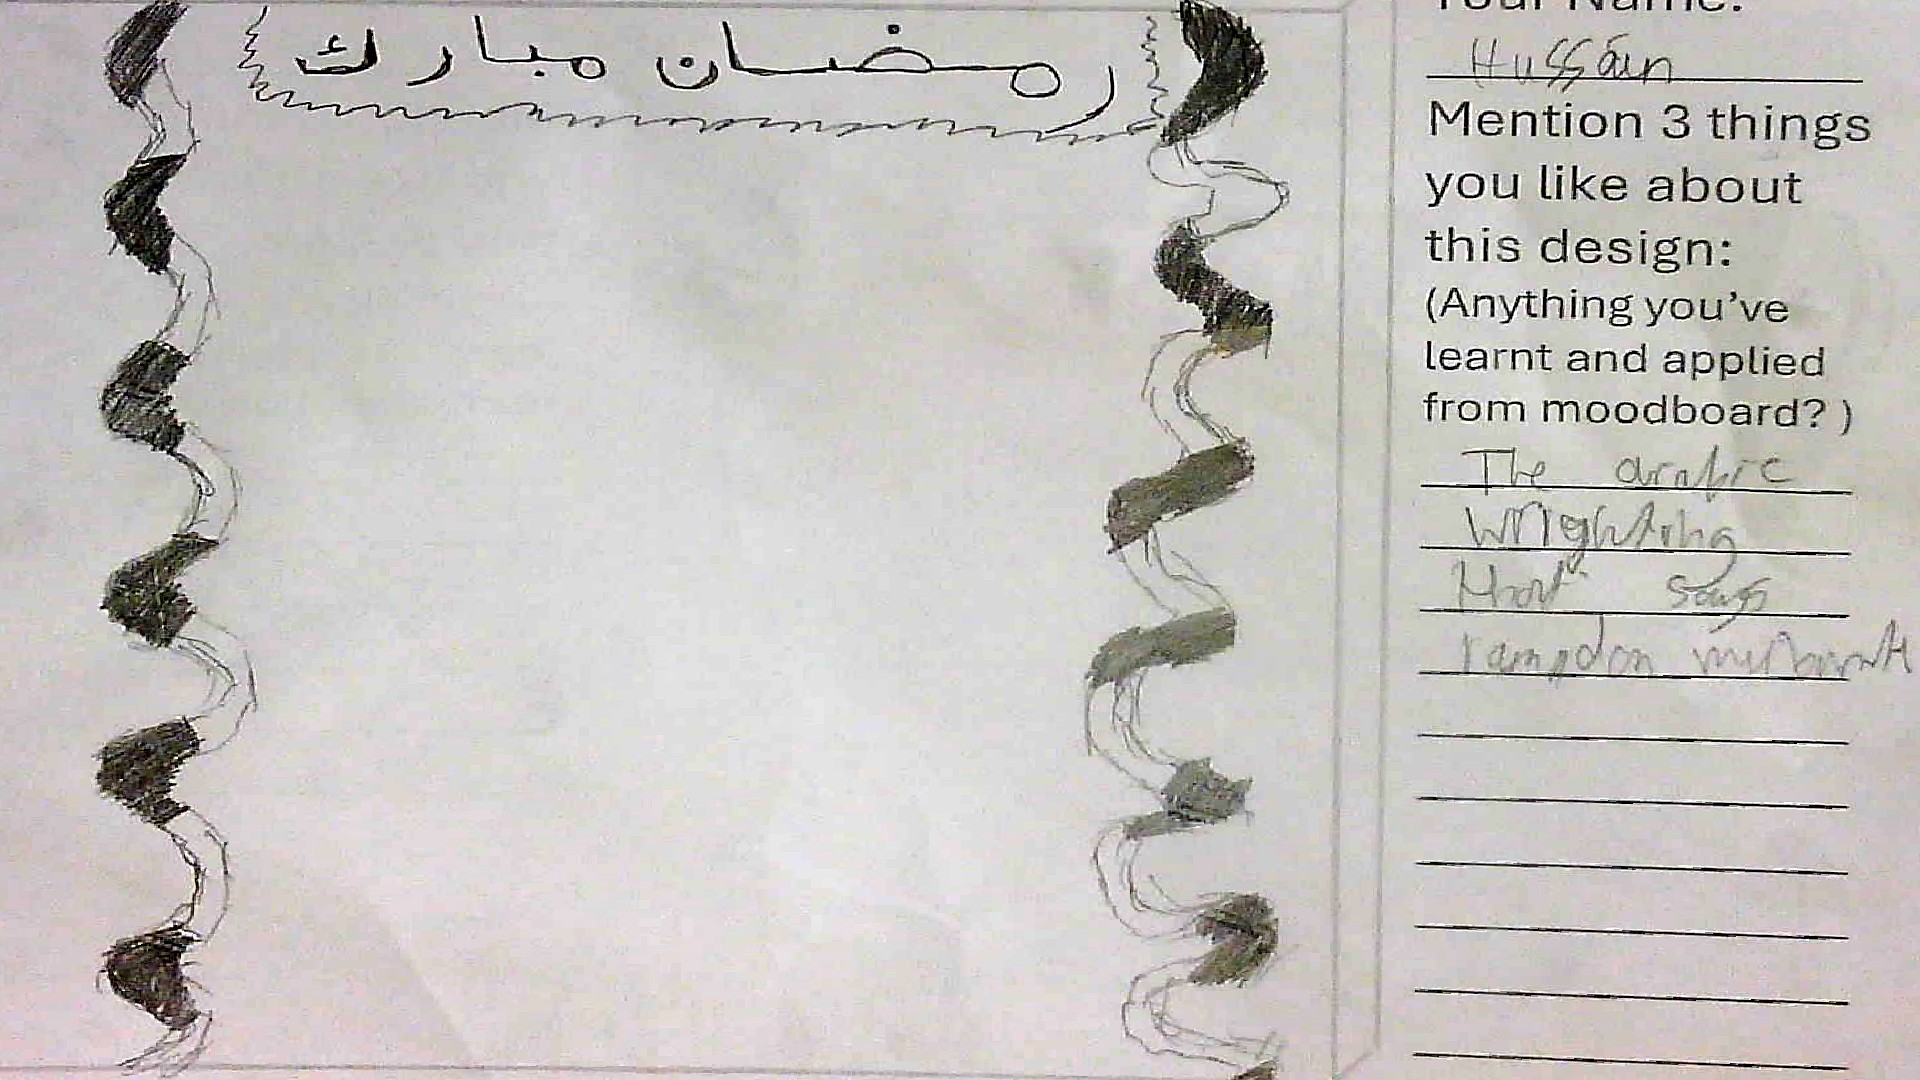 رمضان مبارك
Your Name:
Hussain
Mention 3 things
you like about
this design:
(Anything you've
learnt and applied
from moodboard? )
The arabic
wrighting
that says